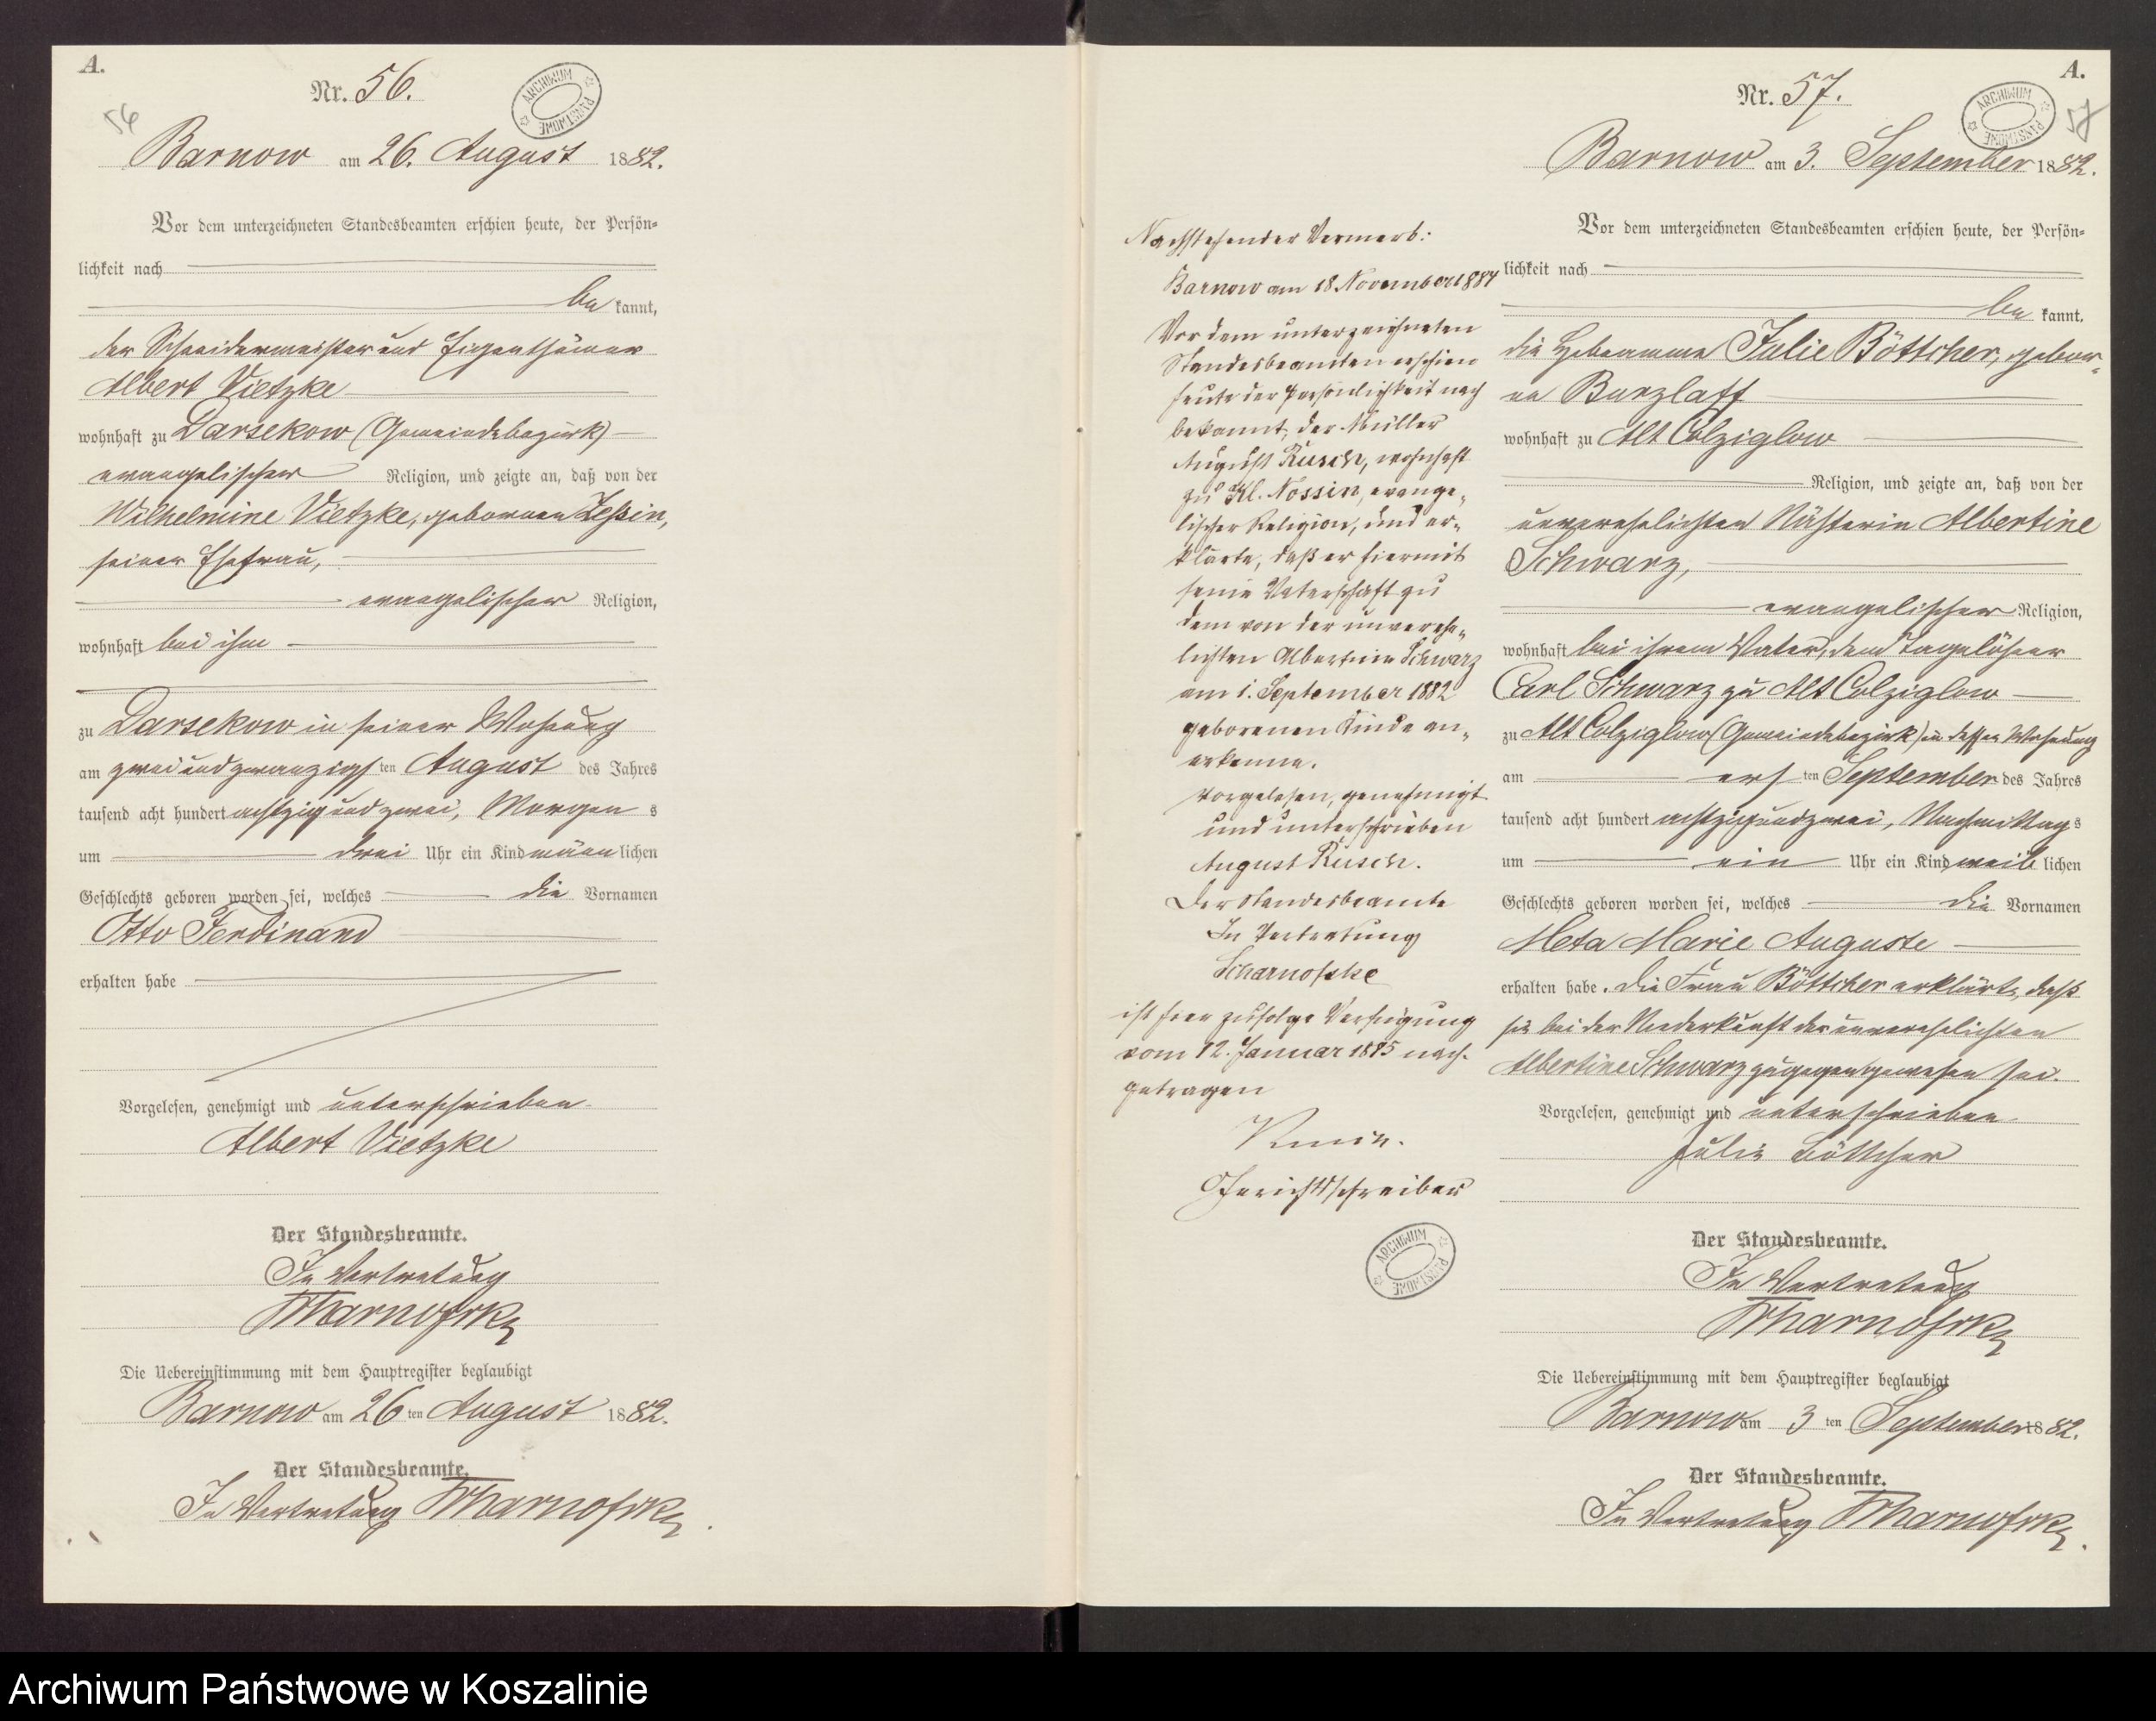 A.
Nr. 56.
ARCHIWUM PAŃSTWOWE
56
Barnow am 26. August 1882.
Vor dem unterzeichneten Standesbeamten erschien heute, der Persön=
lichkeit nach
be kannt,
der Schneidermeister und Eigenthümer
Albert Vietzke
wohnhaft zu Darsekow (Gemeindebezirk)
evangelischer Religion, und zeigte an, daß von der
Wilhelmine Vietzke, geborenen Zessin,
seiner Ehefrau,
evangelischer Religion,
wohnhaft bei ihm
zu Darsekow in seiner Wohnung
am zwei und zwanzigsten August des Jahres
tausend acht hundert achtzig und zwei, Morgens
um drei Uhr ein Kind männlichen
Geschlechts geboren worden sei, welches die Vornamen
Otto Ferdinand
erhalten habe
Vorgelesen, genehmigt und unterschrieben
Albert Vietzke
Der Standesbeamte.
In Vertretung
Scharnofske
Die Uebereinstimmung mit dem Hauptregister beglaubigt
Barnow am 26ten August 1882.
Der Standesbeamte.
In Vertretung Scharnofske.
Nachstehender Vermerk:
Barnow am 18. November 1884
Vor dem unterzeichneten
Standesbeamten erschien
heute der Persönlichkeit nach
bekannt, der Müller
August Rusch, wohnhaft
zu Kl. Nossin, evange=
lischer Religion, und er=
klärte, daß er hiermit
seine Vaterschaft zu
dem von der unverehe=
lichten Albertine Schwarz
am 1. September 1882
geborenen Kinde an=
erkenne.
Vorgelesen, genehmigt
und unterschrieben
August Rusch.
Der Standesbeamte
In Vertretung
Scharnofske
ist hier zufolge Verfügung
vom 12. Januar 1885 nach=
getragen
Gerichtsschreiber
ARCHIWUM PAŃSTWOWE
A.
Nr. 57.
ARCHIWUM PAŃSTWOWE
57
Barnow am 3. September 1882.
Vor dem unterzeichneten Standesbeamten erschien heute, der Persön=
lichkeit nach
be kannt,
die Hebeamme Julie Böttcher, gebor=
ne Burzlaff
wohnhaft zu Alt Colziglow
Religion, und zeigte an, daß von der
unverehelichten Nähterin Albertine
Schwarz,
evangelischer Religion,
wohnhaft bei ihrem Vater, dem Tagelöhner
Carl Schwarz zu Alt Colziglow
zu Alt Colziglow (Gemeindebezirk) in dessen Wohnung
am ersten September des Jahres
tausend acht hundert achtzig und zwei, Nachmittags
um ein Uhr ein Kind weiblichen
Geschlechts geboren worden sei, welches die Vornamen
Meta Marie Auguste
erhalten habe. Die Frau Böttcher erklärte, daß
sie bei der Niederkunft der unverehelichten
Albertine Schwarz zugegen gewesen sei.
Vorgelesen, genehmigt und unterschrieben
Julie Böttcher
Der Standesbeamte.
In Vertretung
Scharnofske
Die Uebereinstimmung mit dem Hauptregister beglaubigt
Barnow am 3ten September 1882.
Der Standesbeamte.
In Vertretung Scharnofske.
Archiwum Państwowe w Koszalinie